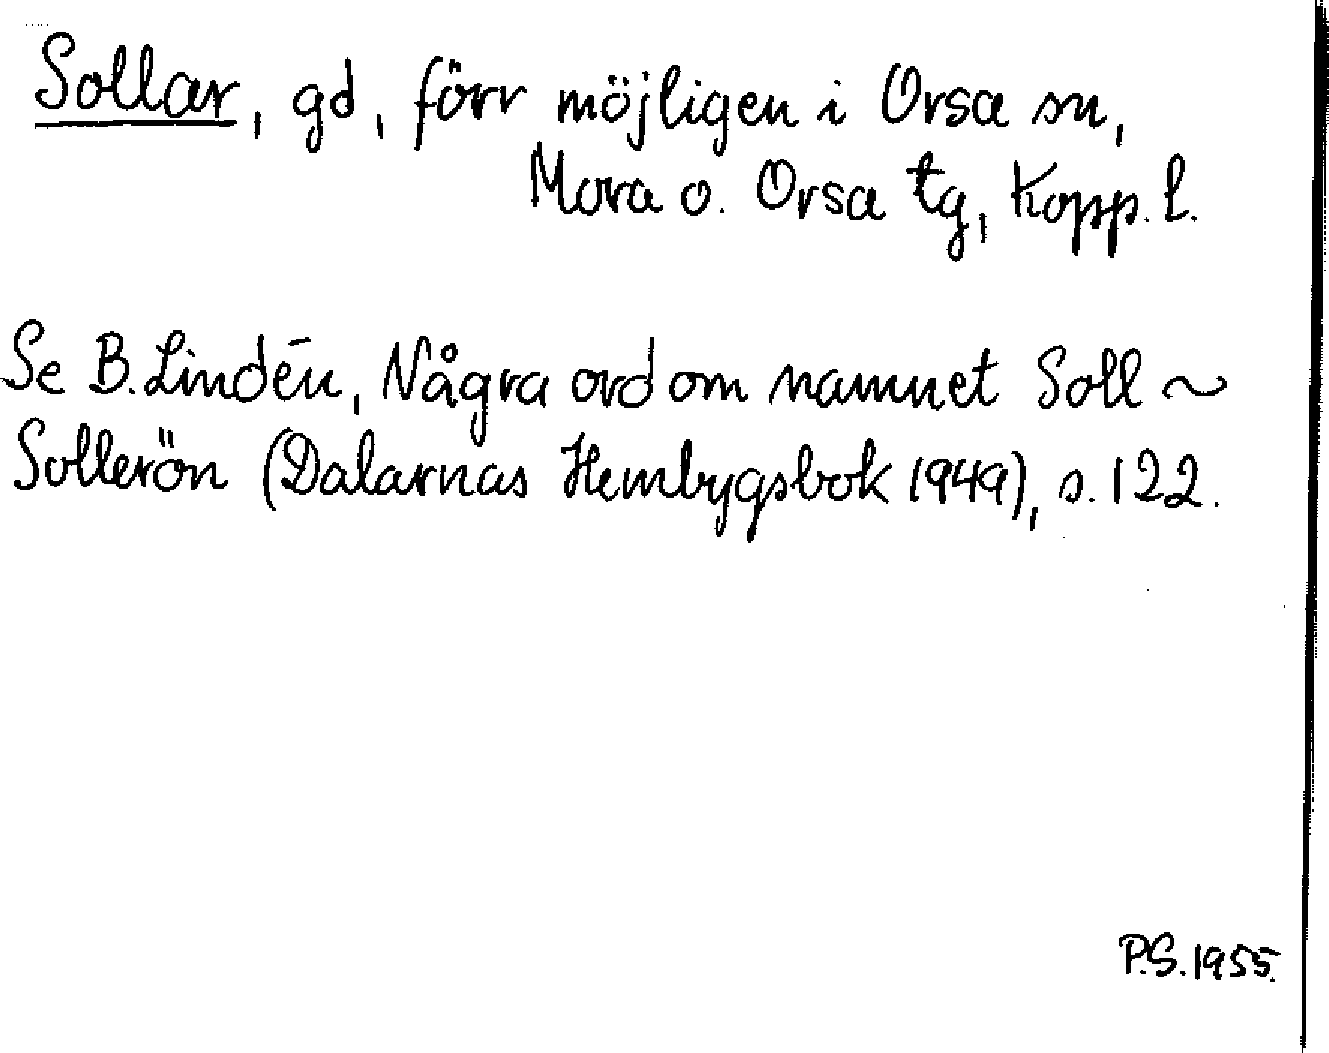 Sollar, gd, förr möjligen i Orsa sn,
Mora o. Orsa tg, Kopp. l.
Se B. Lindén, Några ord om namnet Soll ~
Sollerön (Dalarnas Hembygsbok 1949), s. 122.
P.S. 1955.